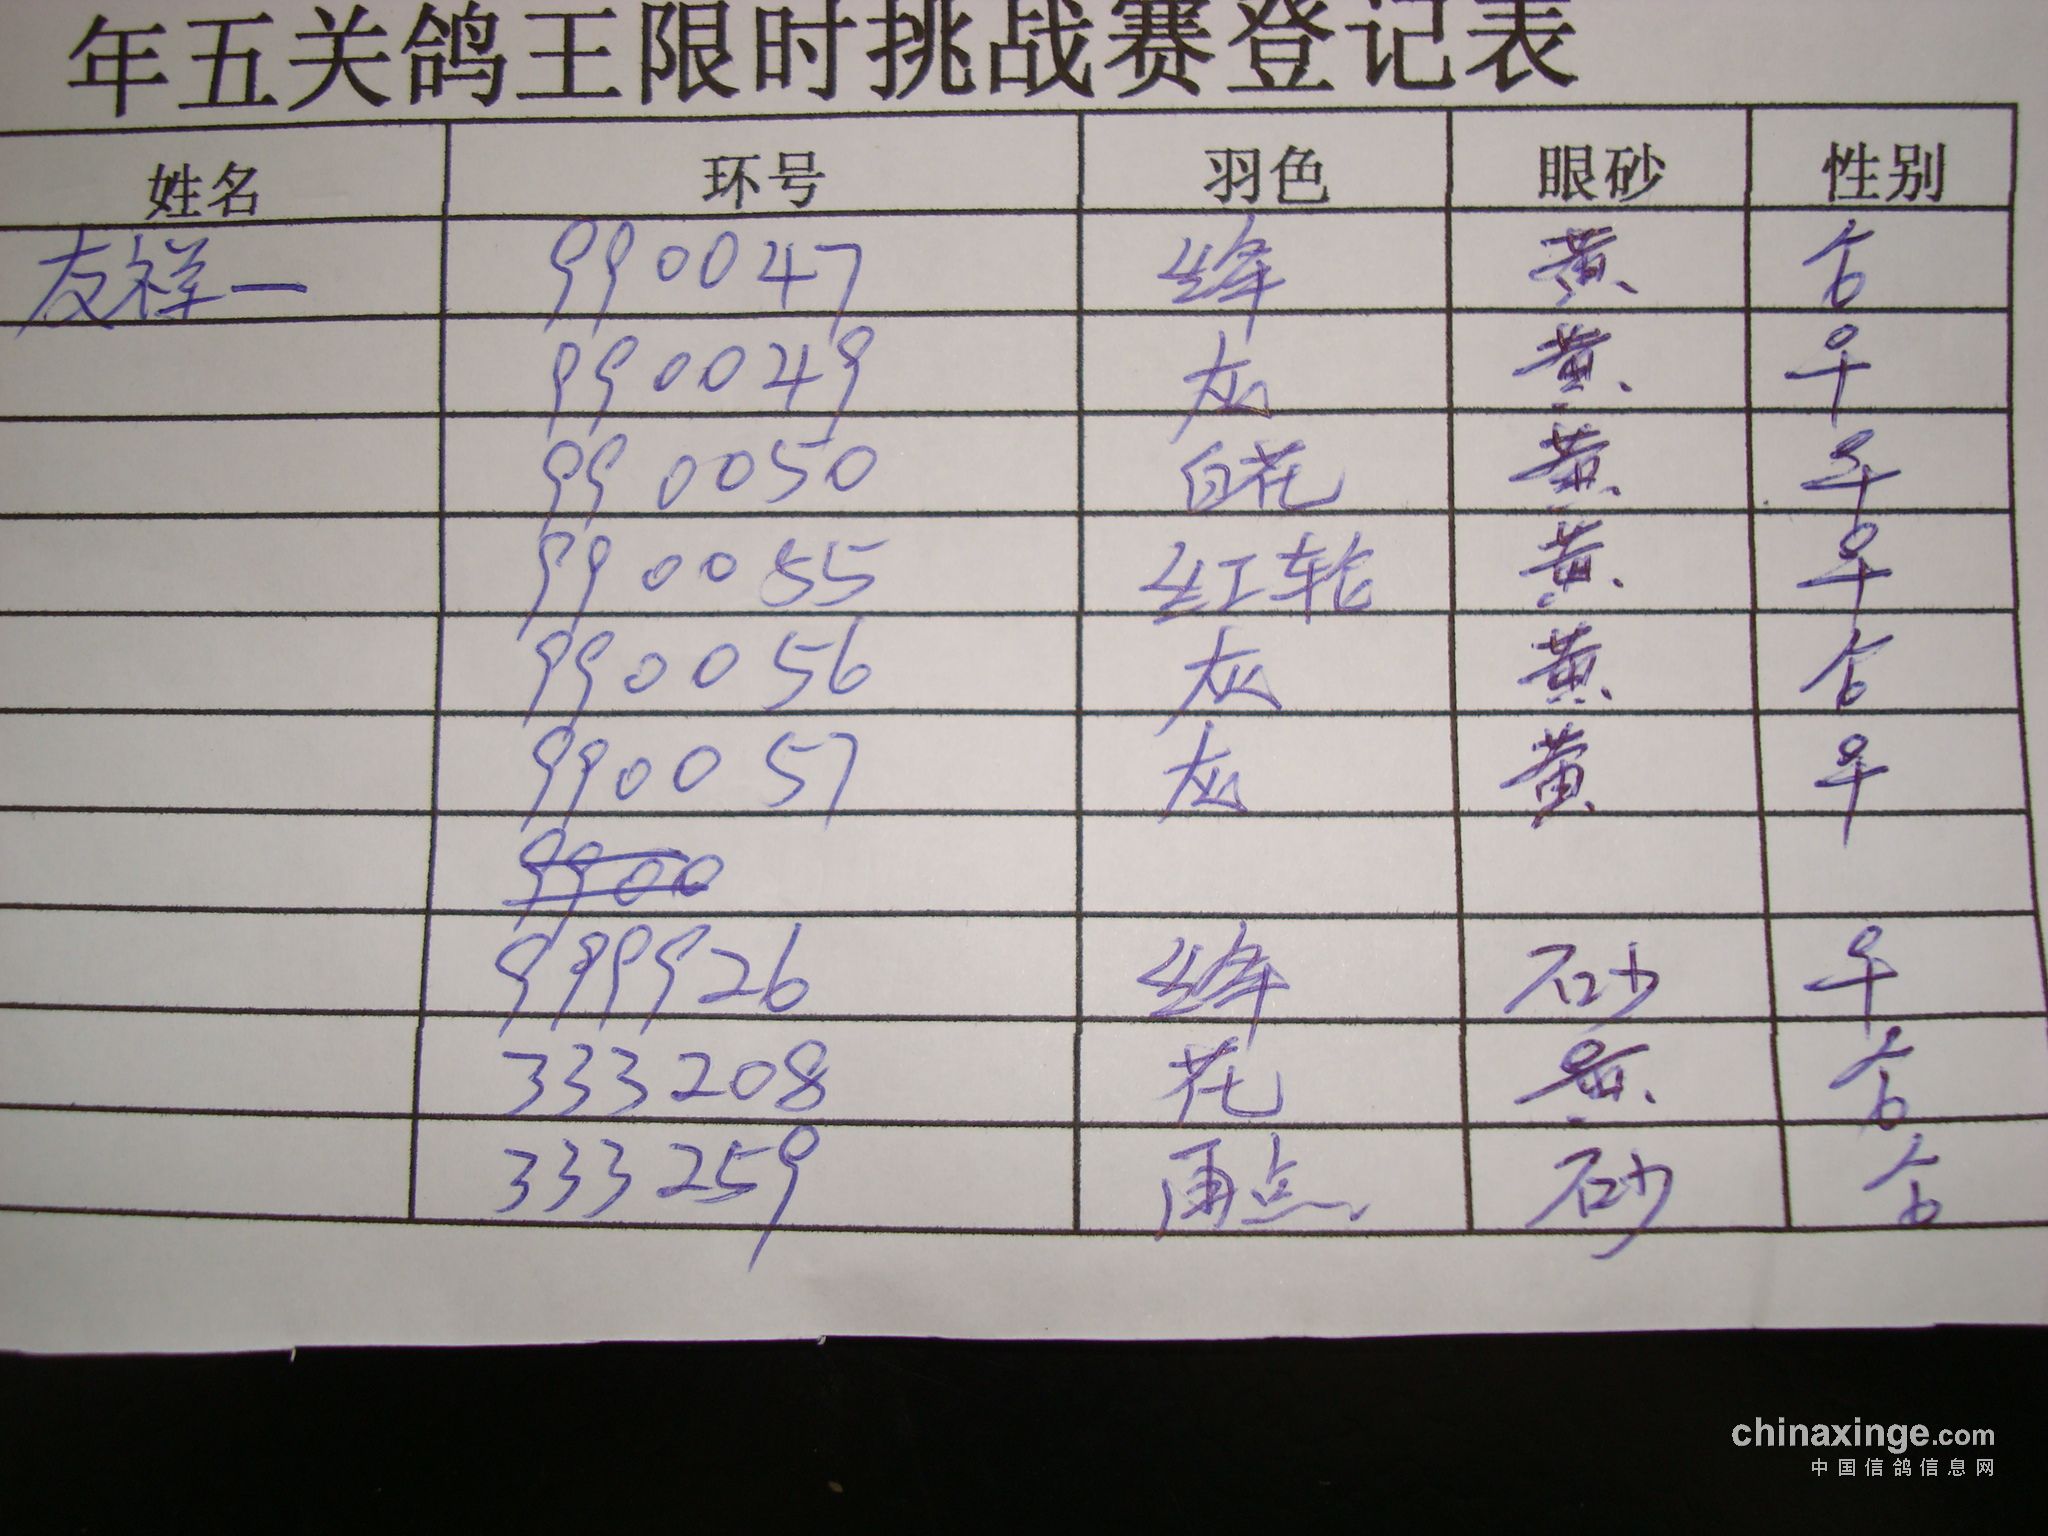 年五关鸽王限时挑战赛登记表
姓名 环号 羽色 眼砂 性别
友祥一 990047 绛 黄 合
990049 灰 黄 ♀
990050 白花 黄 ♀
990055 红轮 黄 ♀
990056 灰 黄 合
990057 灰 黄 ♀
9900
999926 绛 砂 ♀
333208 花 黄 合
333259 雨点 砂 合
chinaxinge.com
中国信鸽信息网